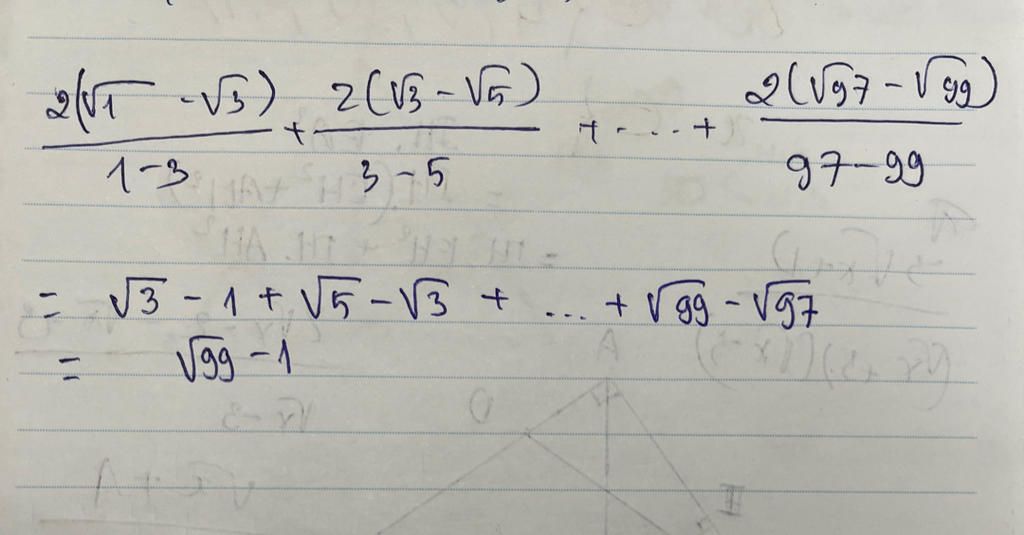 2(√1 - √3)/(1-3) + 2(√3 - √5)/(3-5) + ... + 2(√97 - √99)/(97-99)
= √3 - 1 + √5 - √3 + ... + √99 - √97
= √99 - 1